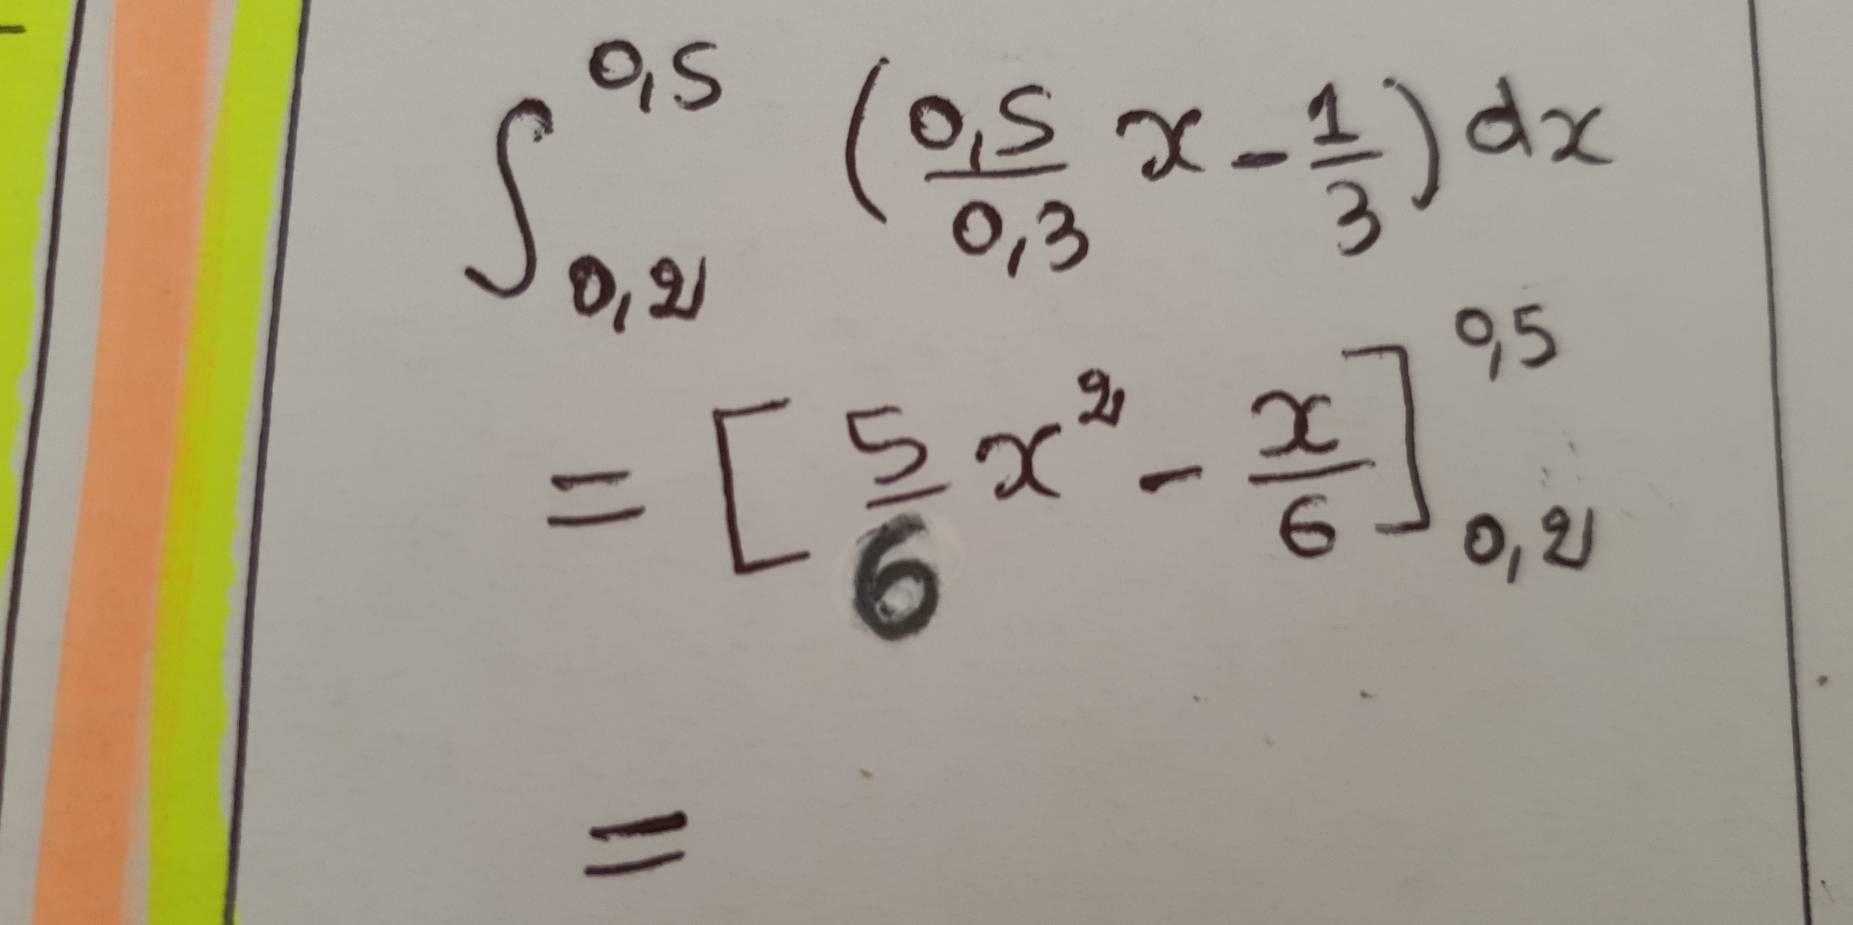 ∫_{0,2}^{0,5} (\frac{0,5}{0,3} x - \frac{1}{3}) dx
= [\frac{5}{6} x^2 - \frac{x}{6}]_{0,2}^{0,5}
=